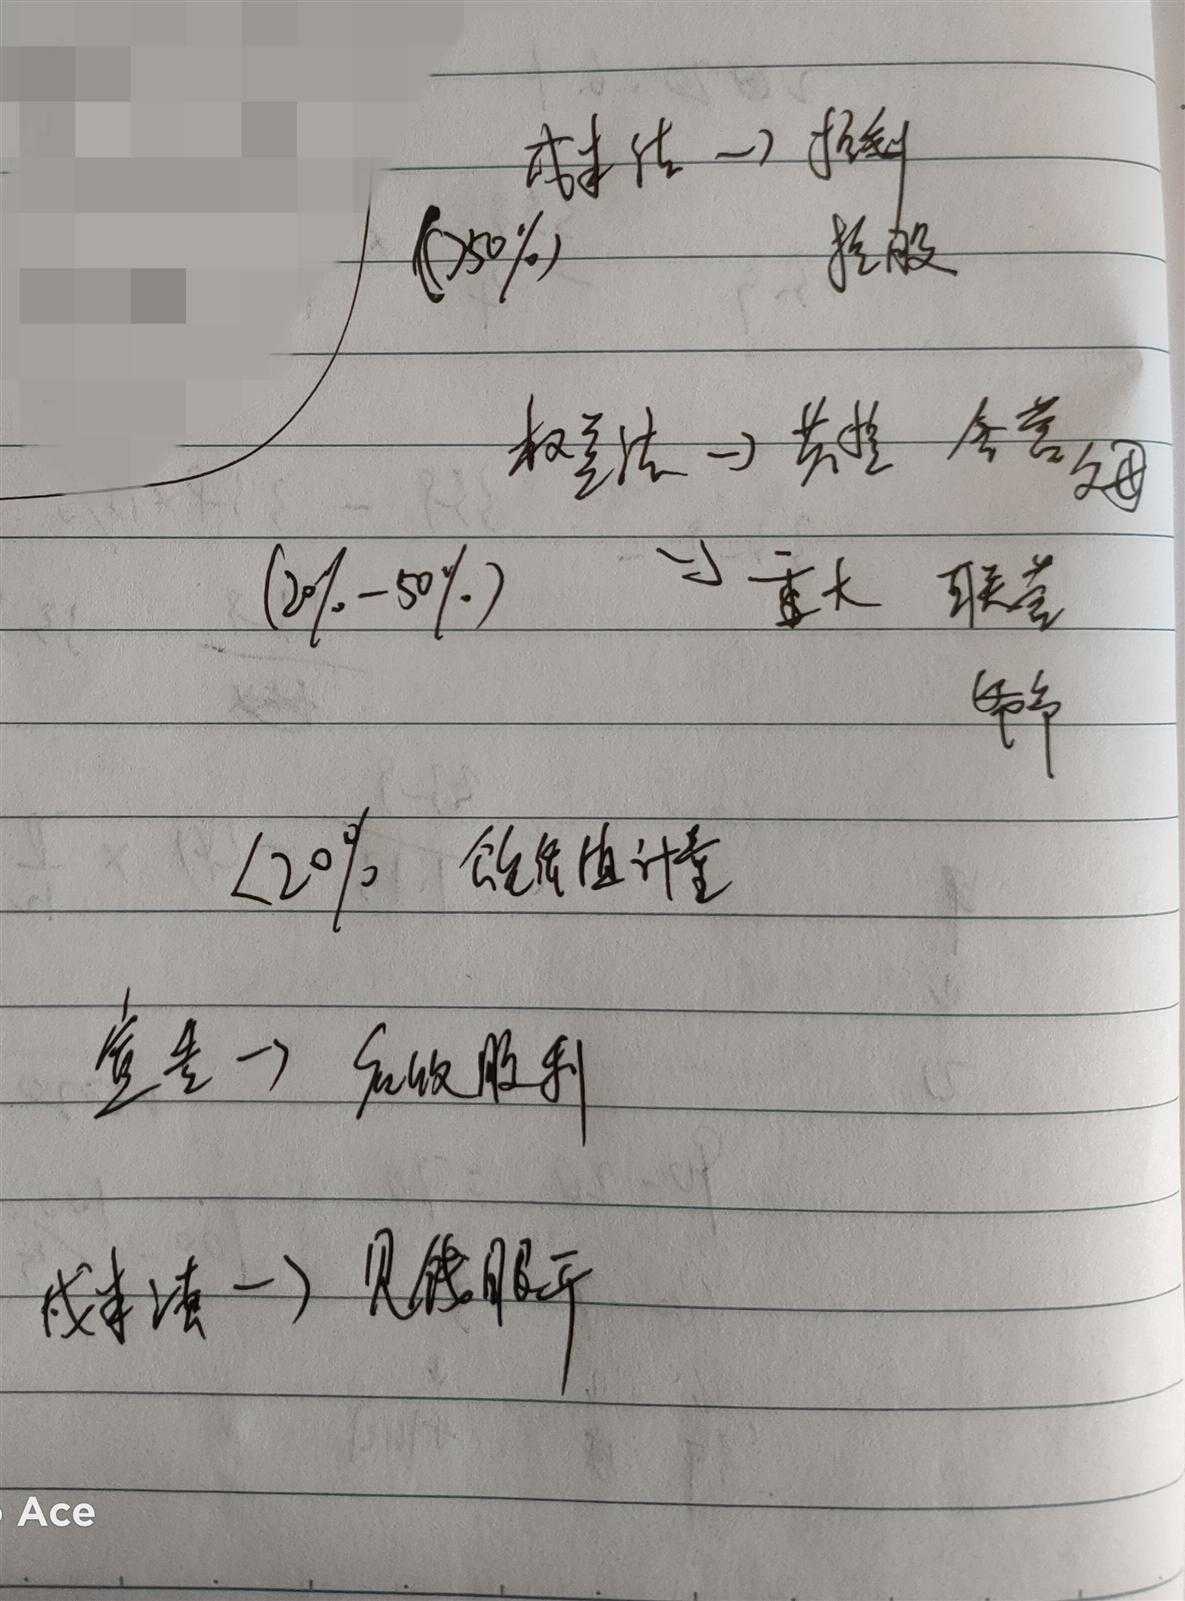 成本法 → 控制
(>50%) 控股
权益法 → 共控 合营
(20%-50%) → 重大 联营
<20% 公允价值计量
宣告 → 应收股利
成本法 →
Ace